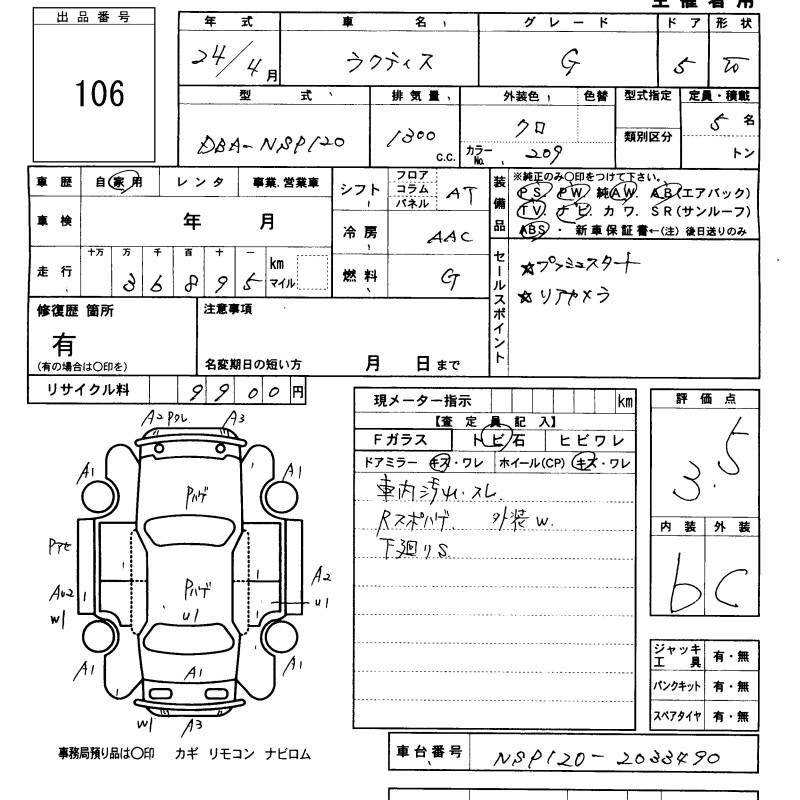 主催者用
出品番号
106
年式 車名 グレード ドア 形状
24/4月 ラクティス G 5
型式 排気量 外装色 色替 型式指定 定員・積載
DBA-NSP120 1300 c.c. クロ 類別区分 5名
カラーNo. 209 トン
車歴 自家用 レンタ 事業.営業車
シフト フロア コラム パネル AT
装備品 ※純正のみ〇印をつけて下さい。
PS PW 純AW. AB(エアバック)
TV. ナビ. カワ. SR(サンルーフ)
ABS ・ 新車保証書←(注)後日送りのみ
車検 年 月
冷房 AAC
走行 十万 万 千 百 十 一 km マイル
36895
燃料 G
セールスポイント
☆プッシュスタート
☆リアカメラ
修復歴 箇所
有
(有の場合は〇印を)
注意事項
名変期日の短い方 月 日まで
リサイクル料 9900円
現メーター指示 km
【査定員記入】
Fガラス トビ石 ヒビワレ
ドアミラー キズ・ワレ ホイール(CP) キズ・ワレ
車内汚れ.スレ
Rスポハゲ. 外装w.
下廻りS
評価点
3.5
内装 外装
b C
A2 Pクレ A3
A1 A1
Pハゲ
A2
Pハゲ
w1 U1 U1
A1 A1 A1
w1 A3
ジャッキ工具 有・無
パンクキット 有・無
スペアタイヤ 有・無
事務局預り品は〇印 カギ リモコン ナビロム
車台番号 NSP120-2033490